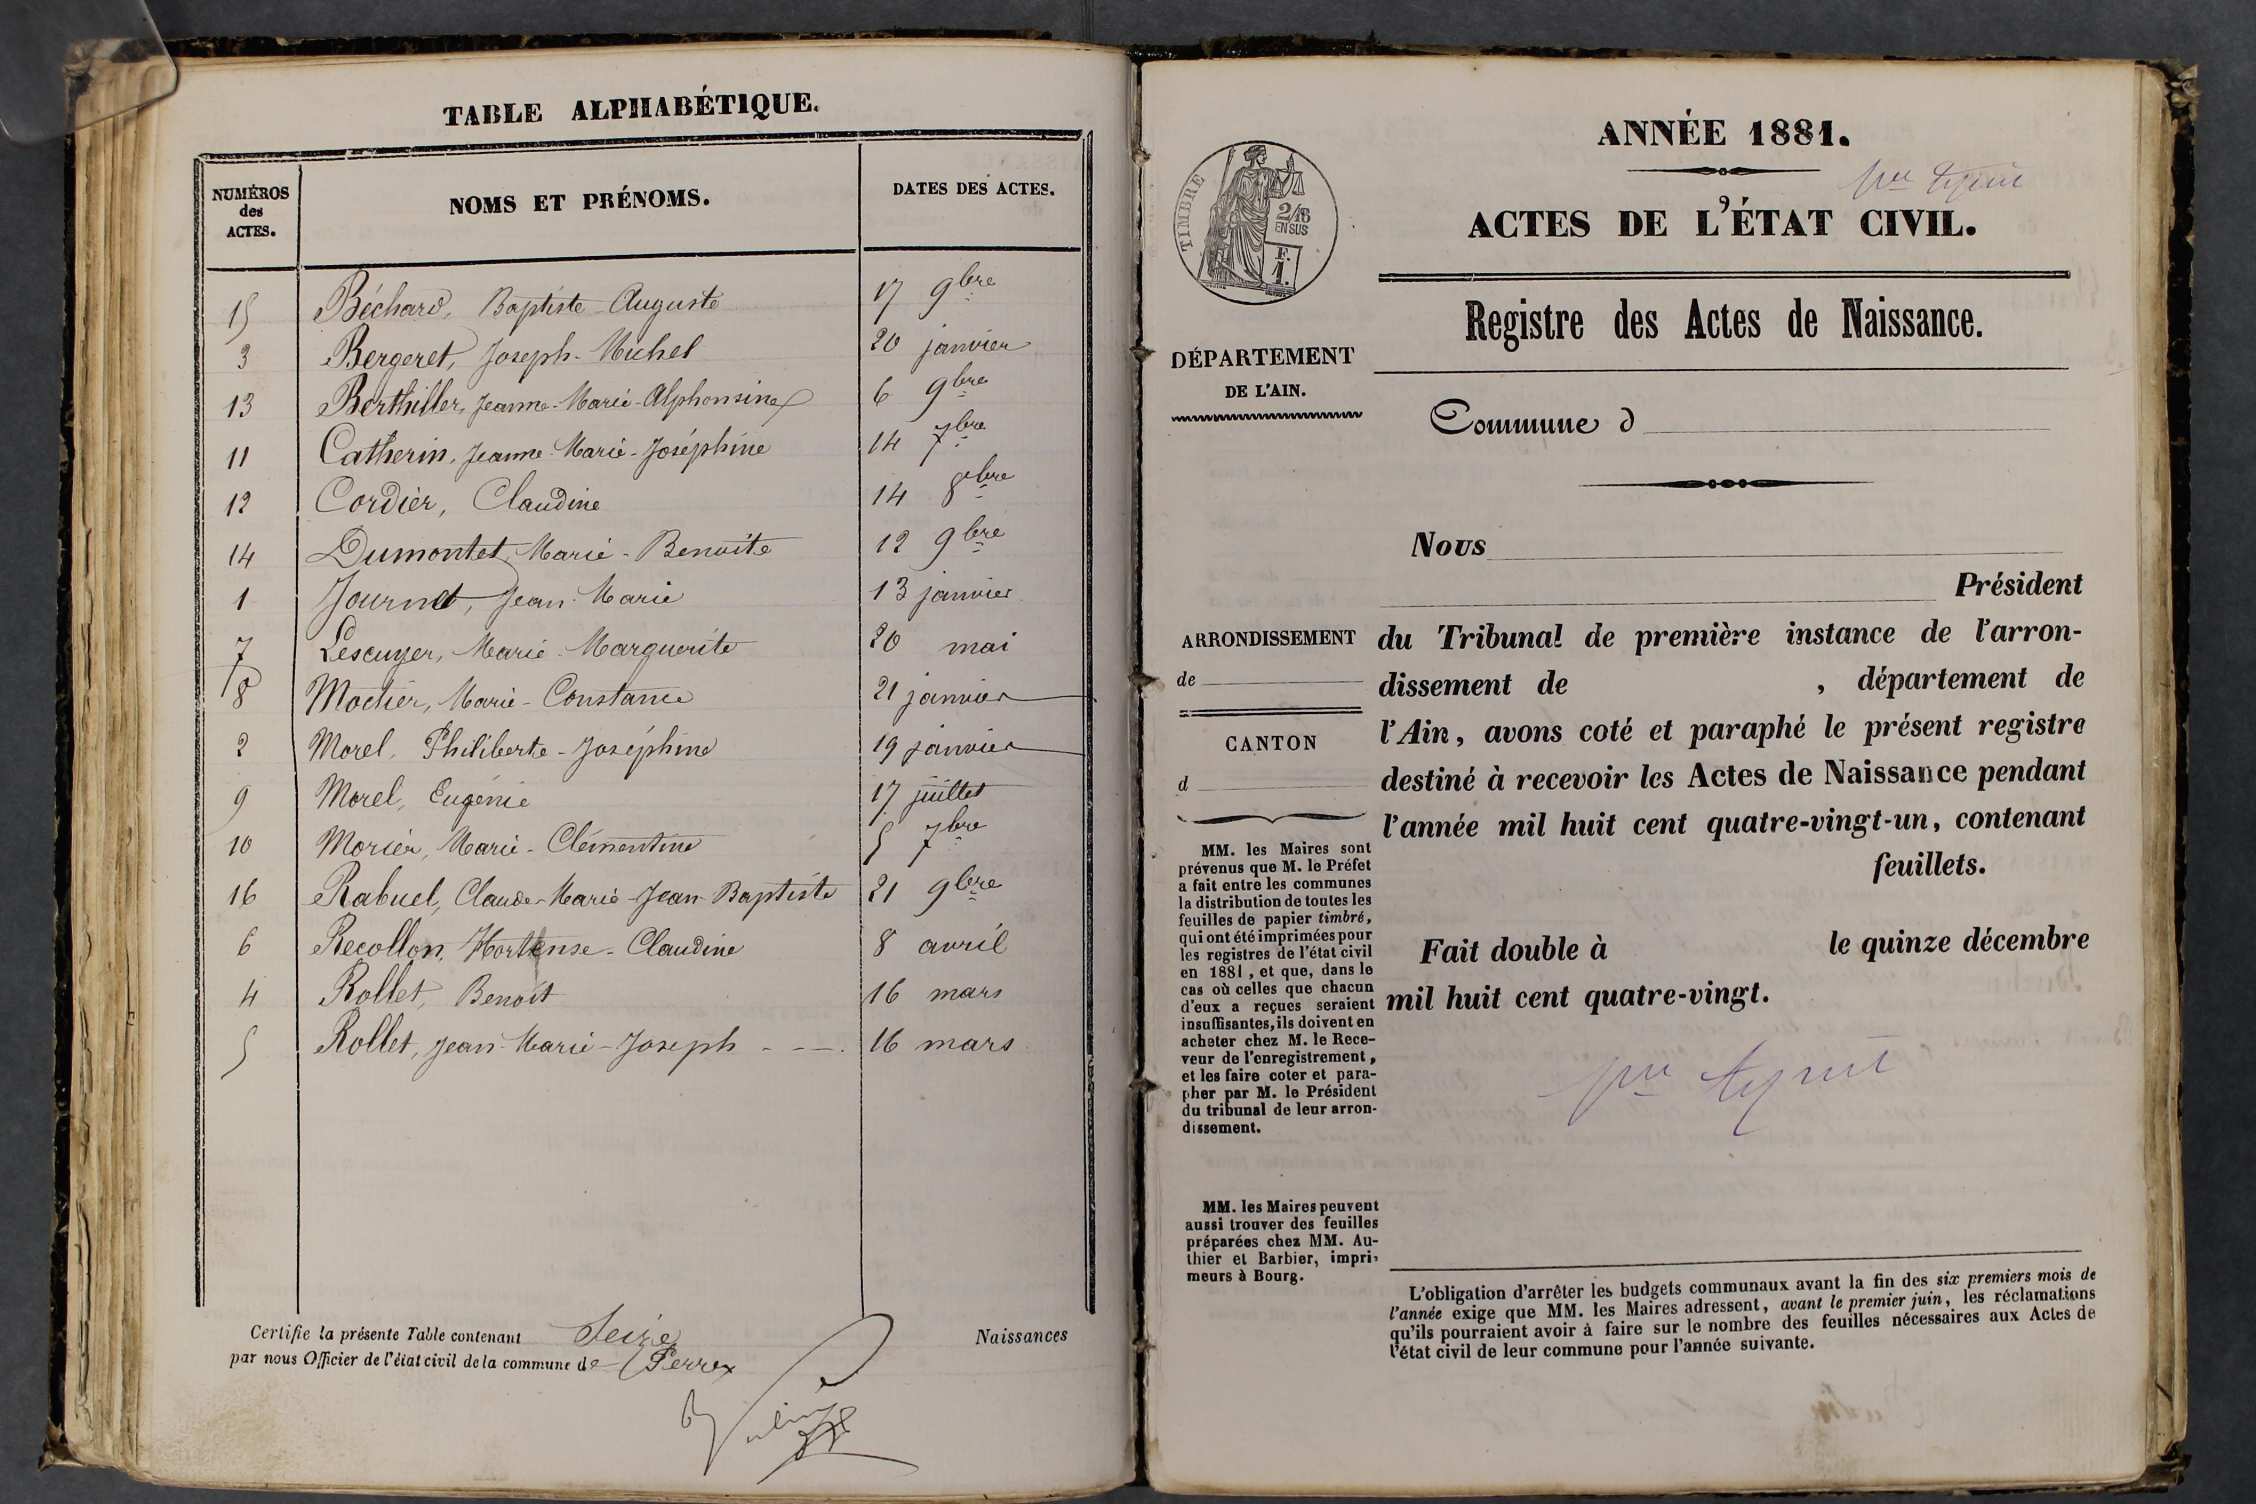 TABLE ALPHABÉTIQUE.
NUMÉROS des ACTES. NOMS ET PRÉNOMS. DATES DES ACTES.
15 Béchard, Baptiste-Auguste 17 9bre
3 Bergeret, Joseph-Michel 20 janvier
13 Berthiller, Jeanne-Marie-Alphonsine 6 9bre
11 Catherin, Jeanne-Marie-Joséphine 14 7bre
12 Cordier, Claudine 14 8bre
14 Dumontet, Marie-Benoite 12 9bre
1 Journet, Jean-Marie 13 janvier
7 Lescuyer, Marie-Marguerite 20 mai
8 Marie-Constance 21 janvier
2 Morel, Philiberte-Joséphine 19 janvier
9 Morel, Eugénie 17 juillet
10 Morier, Marie-Clémentine 5 7bre
16 Rabuel, Claude-Marie-Jean-Baptiste 21 9bre
6 Recollon, Hortense-Claudine 8 avril
4 Rollet, Benoît 16 mars
5 Rollet, Jean-Marie-Joseph - - - 16 mars
Certifie la présente Table contenant Seize Naissances
par nous Officier de l'état civil de la commune de Perrex
ANNÉE 1881.
ACTES DE L'ÉTAT CIVIL.
TIMBRE
2/10
EN SUS
F.
1.
Registre des Actes de Naissance.
DÉPARTEMENT
DE L'AIN.
Commune d
Nous
Président
ARRONDISSEMENT
de
CANTON
d
du Tribunal de première instance de l'arron-
dissement de , département de
l'Ain, avons coté et paraphé le présent registre
destiné à recevoir les Actes de Naissance pendant
l'année mil huit cent quatre-vingt-un, contenant
feuillets.
Fait double à le quinze décembre
mil huit cent quatre-vingt.
MM. les Maires sont
prévenus que M. le Préfet
a fait entre les communes
la distribution de toutes les
feuilles de papier timbré,
qui ont été imprimées pour
les registres de l'état civil
en 1881, et que, dans le
cas où celles que chacun
d'eux a reçues seraient
insuffisantes, ils doivent en
acheter chez M. le Rece-
veur de l'enregistrement,
et les faire coter et para-
pher par M. le Président
du tribunal de leur arron-
dissement.
MM. les Maires peuvent
aussi trouver des feuilles
préparées chez MM. Au-
thier et Barbier, impri-
meurs à Bourg.
L'obligation d'arrêter les budgets communaux avant la fin des six premiers mois de
l'année exige que MM. les Maires adressent, avant le premier juin, les réclamations
qu'ils pourraient avoir à faire sur le nombre des feuilles nécessaires aux Actes de
l'état civil de leur commune pour l'année suivante.